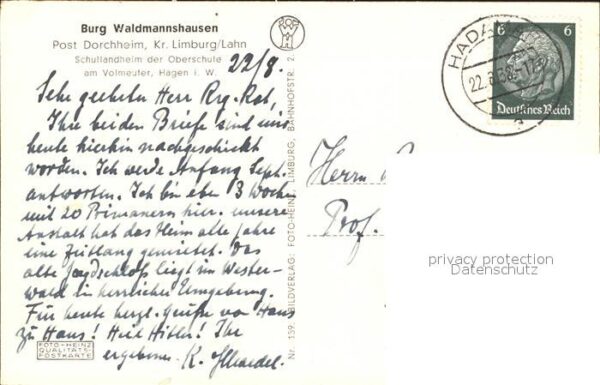 Burg Waldmannshausen
Post Dorchheim, Kr. Limburg/Lahn
Schullandheim der Oberschule
am Volmeufer, Hagen i. W.
22/8.
Sehr geehrter Herr Rg. Rat,
Ihre beiden Briefe sind mir
heute hierhin nachgeschickt
worden. Ich werde Anfang Sept.
antworten. Ich bin eben 3 Wochen
mit 20 Primanern hier. unsere
Anstalt hat das Heim alle Jahre
eine Zeitlang gemietet. Das
alte Jagdschloß liegt im Wester-
wald in herrlicher Umgebung.
Für heute herzl. Grüße von Haus
zu Haus! Heil Hitler! Ihr
ergebener K.
FOTO-HEINZ
QUALITÄTS-
POSTKARTE
Nr. 159 BILDVERLAG: FOTO-HEINZ, LIMBURG, BAHNHOFSTR. 2
Herrn
Prof.
HADAMAR
22.8.
6 6
Deutsches Reich
privacy protection
Datenschutz